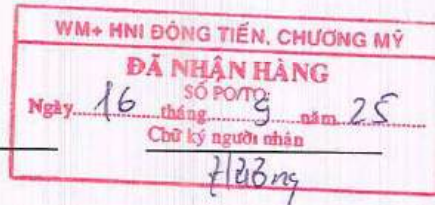 WM+ HNI ĐÔNG TIẾN, CHƯƠNG MỸ
ĐÃ NHẬN HÀNG
SỐ PO/TO:
Ngày 16 tháng 9 năm 25
Chữ ký người nhận